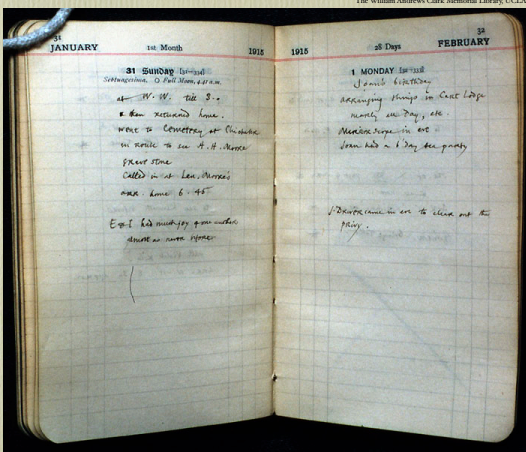 The William Andrews Clark Memorial Library, UCLA
31
JANUARY 1st Month 1915
31 Sunday [31—334]
Septuagesima. O Full Moon, 4.41 a.m.
at W. W. till 3.
& then returned home.
went to Cemetery at Chichester
en route to see A. H.
grave stone
Called in at Len.
arr. home 6.45
E & I had much joy
almost as never before
32
1915 28 Days FEBRUARY
1 MONDAY [32—333]
Joan's birthday
arranging things in Cart Lodge
nearly all Day, etc.
in eve
Joan had a b'day tea party
J. Driver came in eve to clean out the
privy.